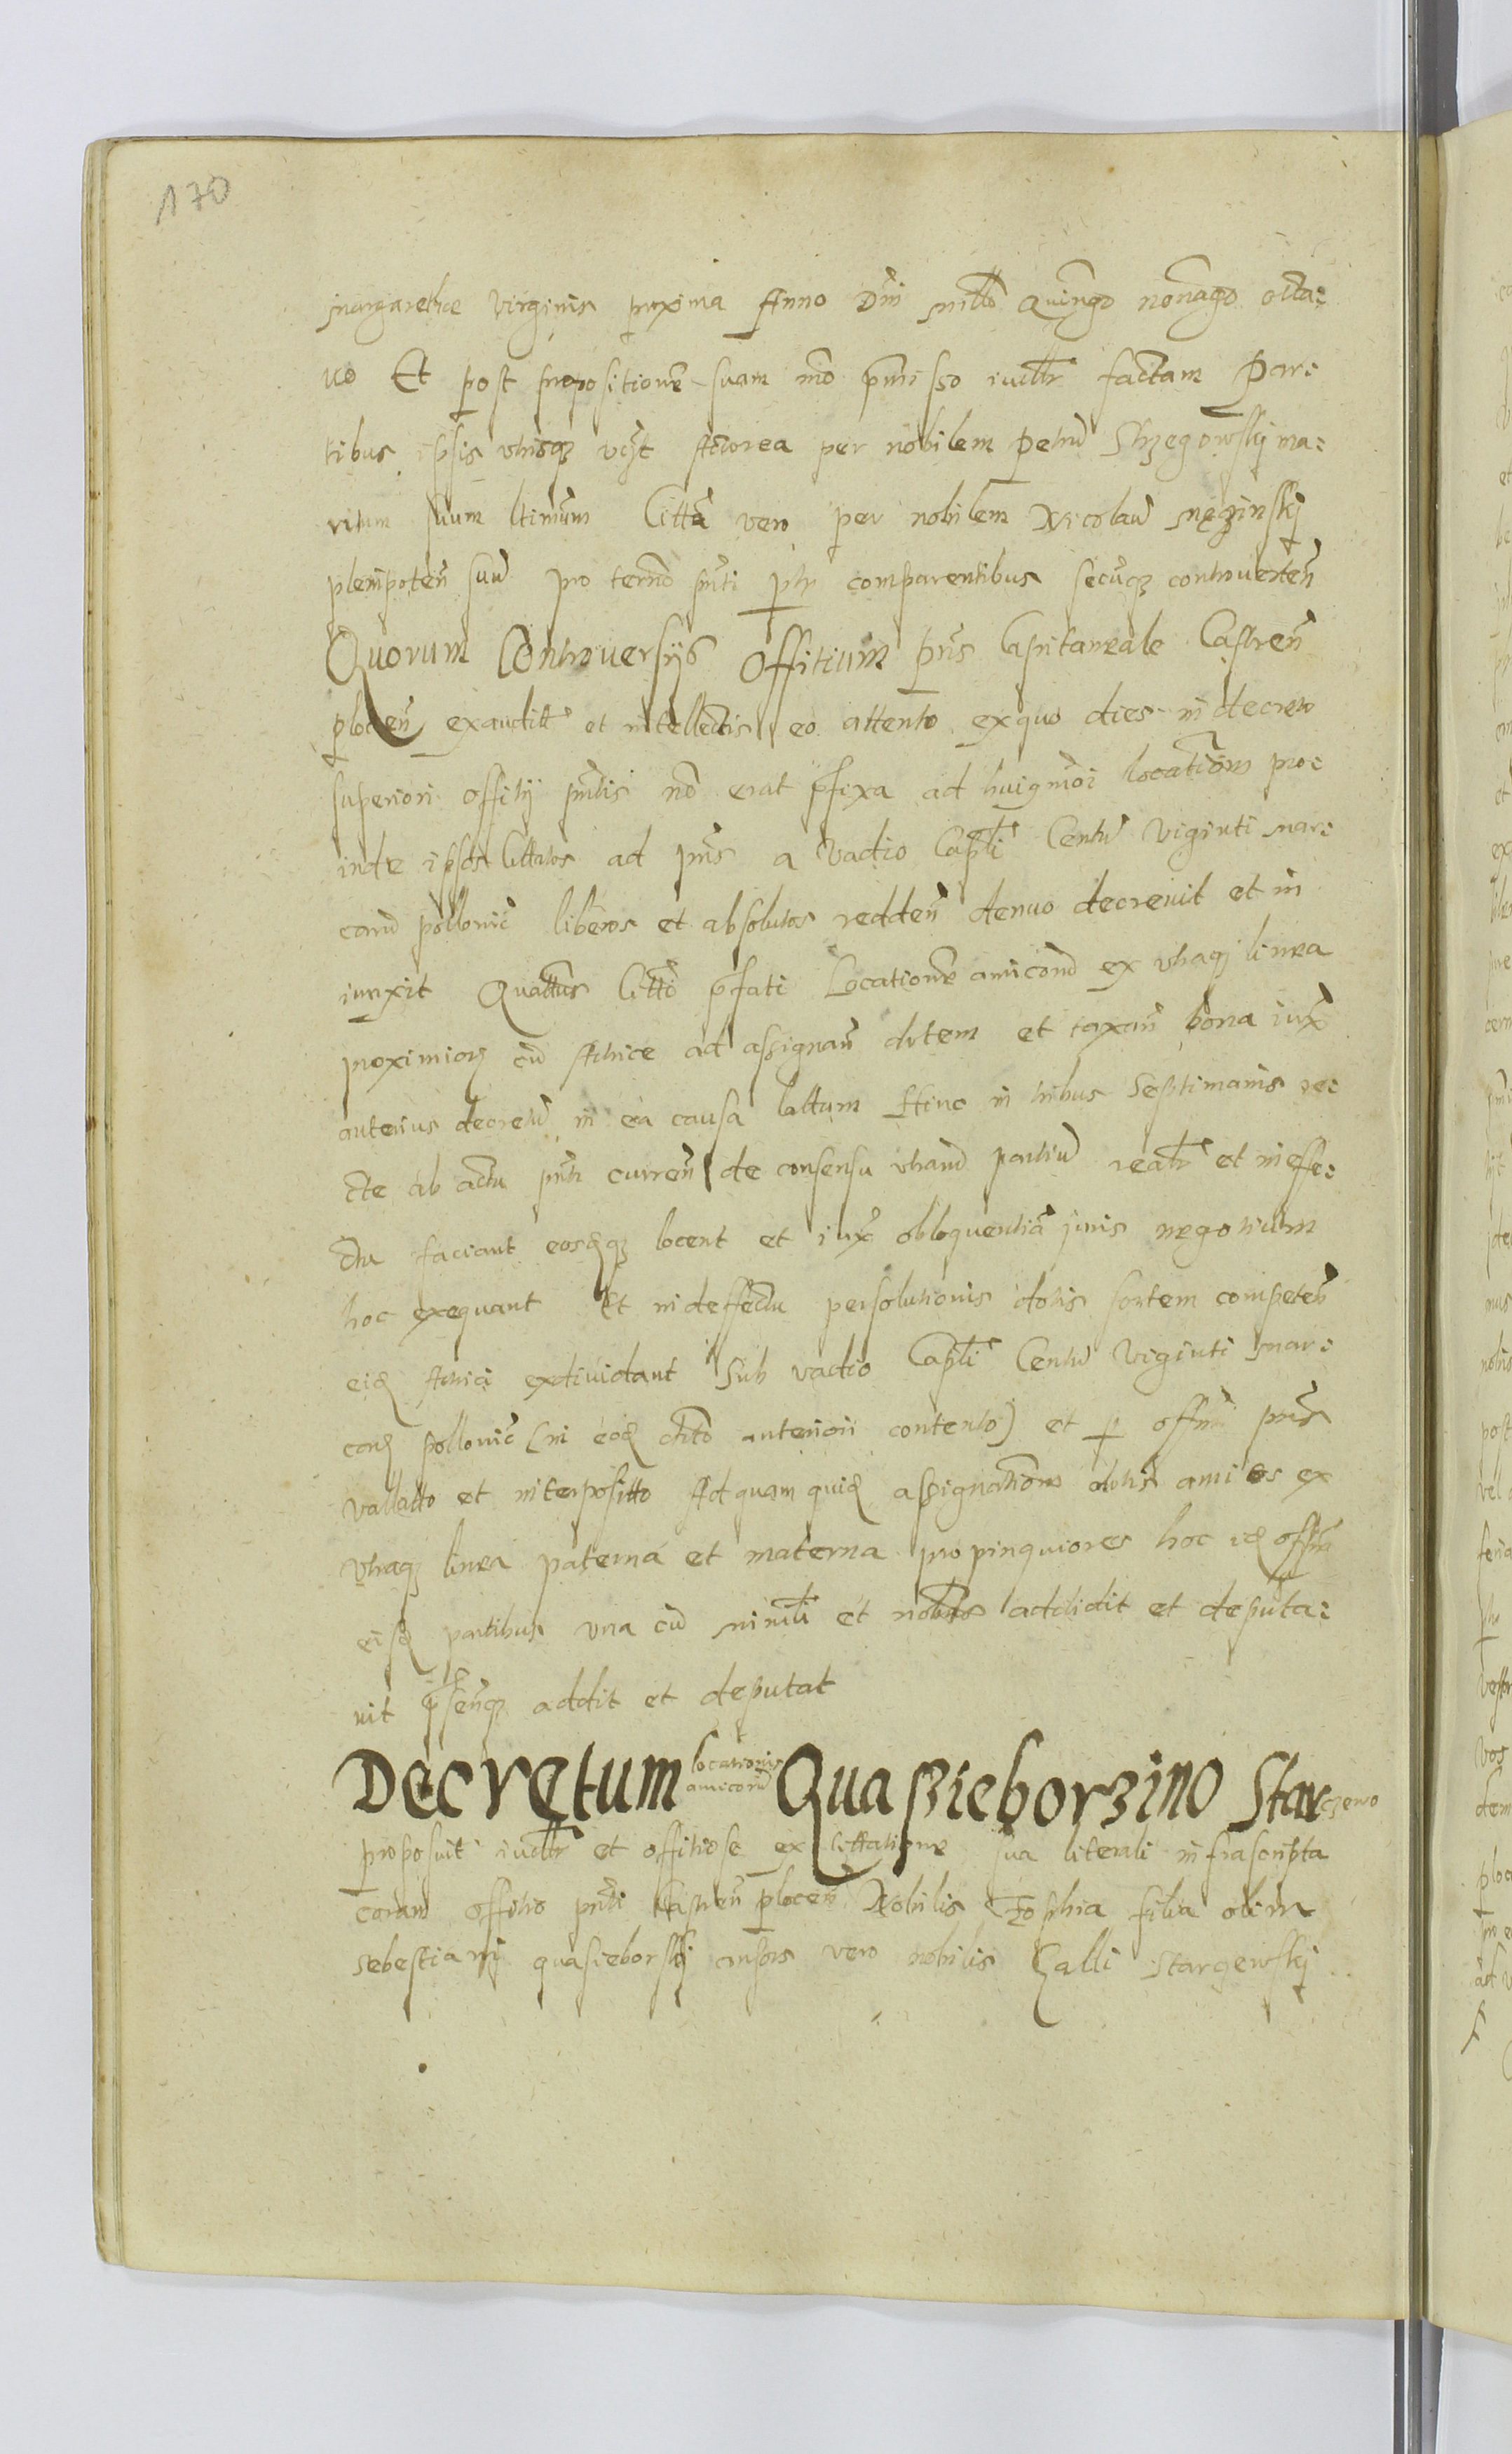 170
margarethæ virginis proxima Anno Dni millo Quingo nonago octa:
uo Et post propositione suam mo pmisso iudlr factam Par:
tibus ipsis utrisq vczt Actorea per nobilem Petru Strzegowskj ma:
ritum suum ltimum Citta vero per nobilem Nicolau męzinskj
plenipoten suu pro termo pnti ptr comparentibus secuq controverten
Quorum Controuersÿs Offitium pns Capitaneale Castren
plocen exauditt et intellectis eo attento exquo dies in decreto
superiori offitÿ pntis no erat pfixa ad huigmoi locationem pro:
inde ipsos Cittatos ad pns a vadio Capli Centu Viginti mar:
caru pollonic liberos et absolutos redden denuo decreuit et in
iunxit Quattus Citti pfati Locatione amicoru ex utraq linea
proximior cu Actrice ad assignan dotem et taxan bona iux
anterius decretu in ea causa lattum Hinc in tribus Septimanis re:
cte ab actu pnti curren de consensu utraru partiu realr et in effe:
ctu faciant eosdq locent et iux obloquentia juris negotium
hoc exequant Et in deffectu persolutionis dotis sortem competen
eid Actrici exdiuidant Sub vadio Capli Centu Viginti mar:
car pollonic (in eod dcto anteriori contento) et p offm pns
vallatto et interpositto Ad quam quid assignationem dotis amicos ex
utraq linea paterna et materna propinquiores hoc id offm
eisd partibus una cu minrli et nobibs addidit et deputa:
uit psenq addit et deputat
Decretum locationis amicoru Quaßieborzino Starczewo
proposuit iudlr et offitiose ex cittatione sua literali infrascripta
coram offitio pnti Castren plocen Nobilis Zophia filia olim
sebestianj quasieborskj consors vero nobilis Galli Starczewskj